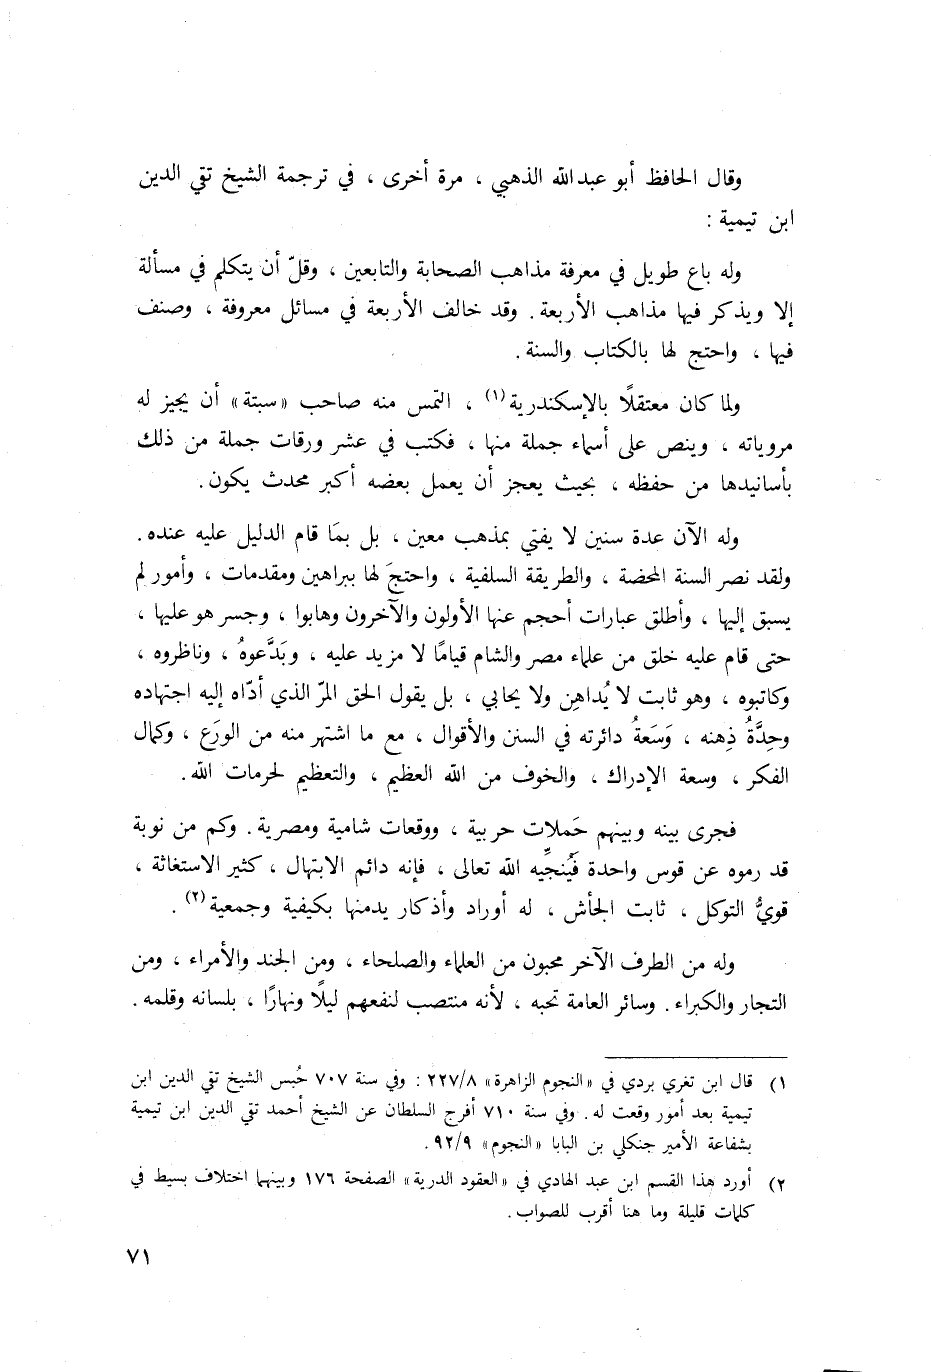 وقال الحافظ أبو عبد الله الذهبي ، مرة أخرى ، في ترجمة الشيخ تقي الدين
ابن تيمية :
وله باع طويل في معرفة مذاهب الصحابة والتابعين ، وقلّ أن يتكلم في مسألة
إلا ويذكر فيها مذاهب الأربعة . وقد خالف الأربعة في مسائل معروفة ، وصنف
فيها ، واحتج لها بالكتاب والسنة .
ولما كان معتقلًا بالإسكندرية(١) ، التمس منه صاحب «سبتة» أن يجيز له
مروياته ، وينص على أسماء جملة منها ، فكتب في عشر ورقات جملة من ذلك
بأسانيدها من حفظه ، بحيث يعجز أن يعمل بعضه أكبر محدث يكون .
وله الآن عدة سنين لا يفتي بمذهب معين ، بل بمَا قام الدليل عليه عنده .
ولقد نصر السنة المحضة ، والطريقة السلفية ، واحتجَ لها ببراهين ومقدمات ، وأمور لم
يسبق إليها ، وأطلق عبارات أحجم عنها الأولون والآخرون وهابوا ، وجسر هو عليها ،
حتى قام عليه خلق من علماء مصر والشام قيامًا لا مزيد عليه ، وبَدَّعوهُ ، وناظروه ،
وكاتبوه ، وهو ثابت لا يُداهِن ولا يحابي ، بل يقول الحق المرّ الذي أدّاه إليه اجتهاده
وحِدَّةُ ذِهنه ، وَسَعةُ دائرته في السنن والأقوال ، مع ما اشتهر منه من الورَع ، وكمال
الفكر ، وسعة الإدراك ، والخوف من الله العظيم ، والتعظيم لحرمات الله .
فجرى بينه وبينهم حَملات حربية ، ووقعات شامية ومصرية . وكم من نوبة
قد رموه عن قوس واحدة فَيُنجِّيه الله تعالى ، فإنه دائم الابتهال ، كثير الاستغاثة ،
قويُّ التوكل ، ثابت الجأش ، له أوراد وأذكار يدمنها بكيفية وجمعية(٢) .
وله من الطرف الآخر محبون من العلماء والصلحاء ، ومن الجند والأمراء ، ومن
التجار والكبراء . وسائر العامة تحبه ، لأنه منتصب لنفعهم ليلًا ونهارًا ، بلسانه وقلمه .
١) قال ابن تغري بردي في «النجوم الزاهرة» ٢٢٧/٨ : وفي سنة ٧٠٧ حُبس الشيخ تقي الدين ابن
تيمية بعد أمور وقعت له . وفي سنة ٧١٠ أفرج السلطان عن الشيخ أحمد تقي الدين ابن تيمية
بشفاعة الأمير جنكلي بن البابا «النجوم» ٩٢/٩ .
٢) أورد هذا القسم ابن عبد الهادي في «العقود الدرية» الصفحة ١٧٦ وبينهما اختلاف بسيط في
كلمات قليلة وما هنا أقرب للصواب .
٧١